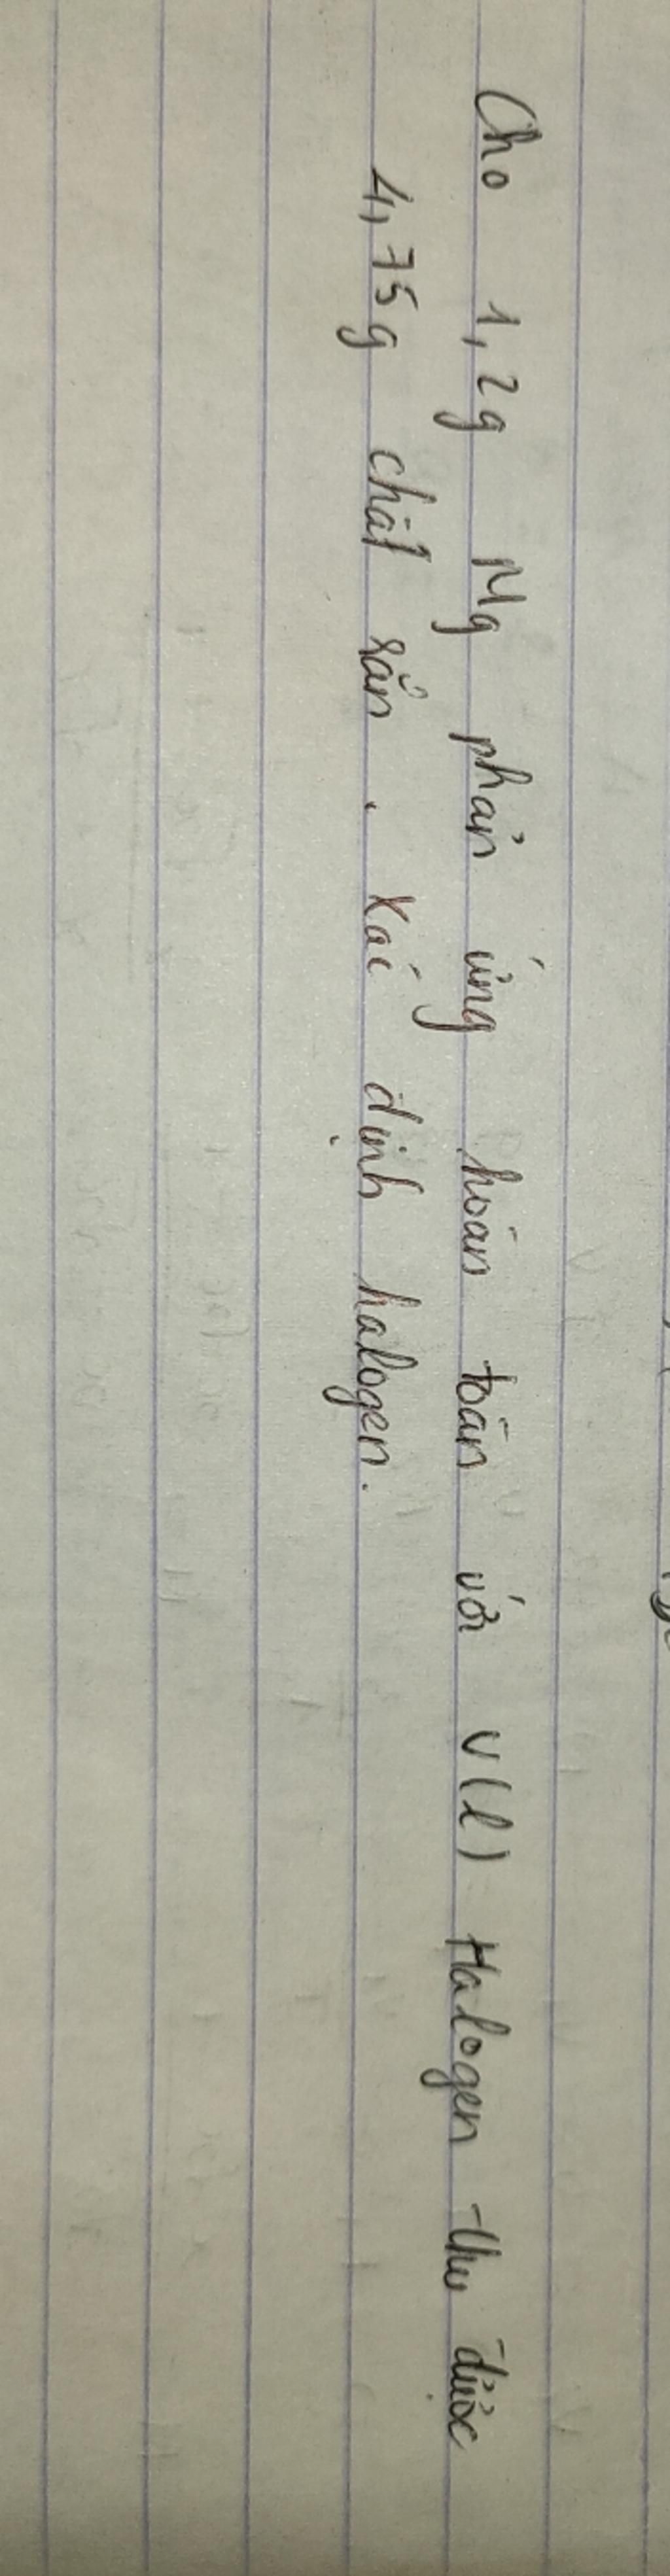 Cho 1,2g Mg phản ứng hoàn toàn với V(l) Halogen thu được
4,75g chất rắn. Xác định halogen.